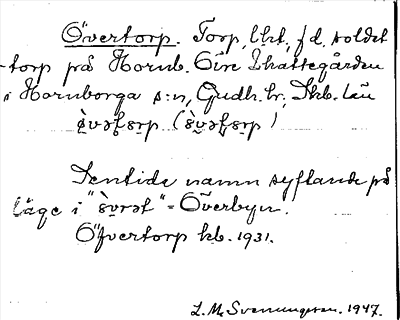 Övertorp. Torp, lht, f.d. soldat
-torp på Hornb. Öive Skattegården
i Hornborga s:n, Gudh. hr, Skb. län
Sentida namn syftande på
läge i "" = Överbyn.
Öfvertorp kb. 1931.
L. M. Svenungsson. 1947.